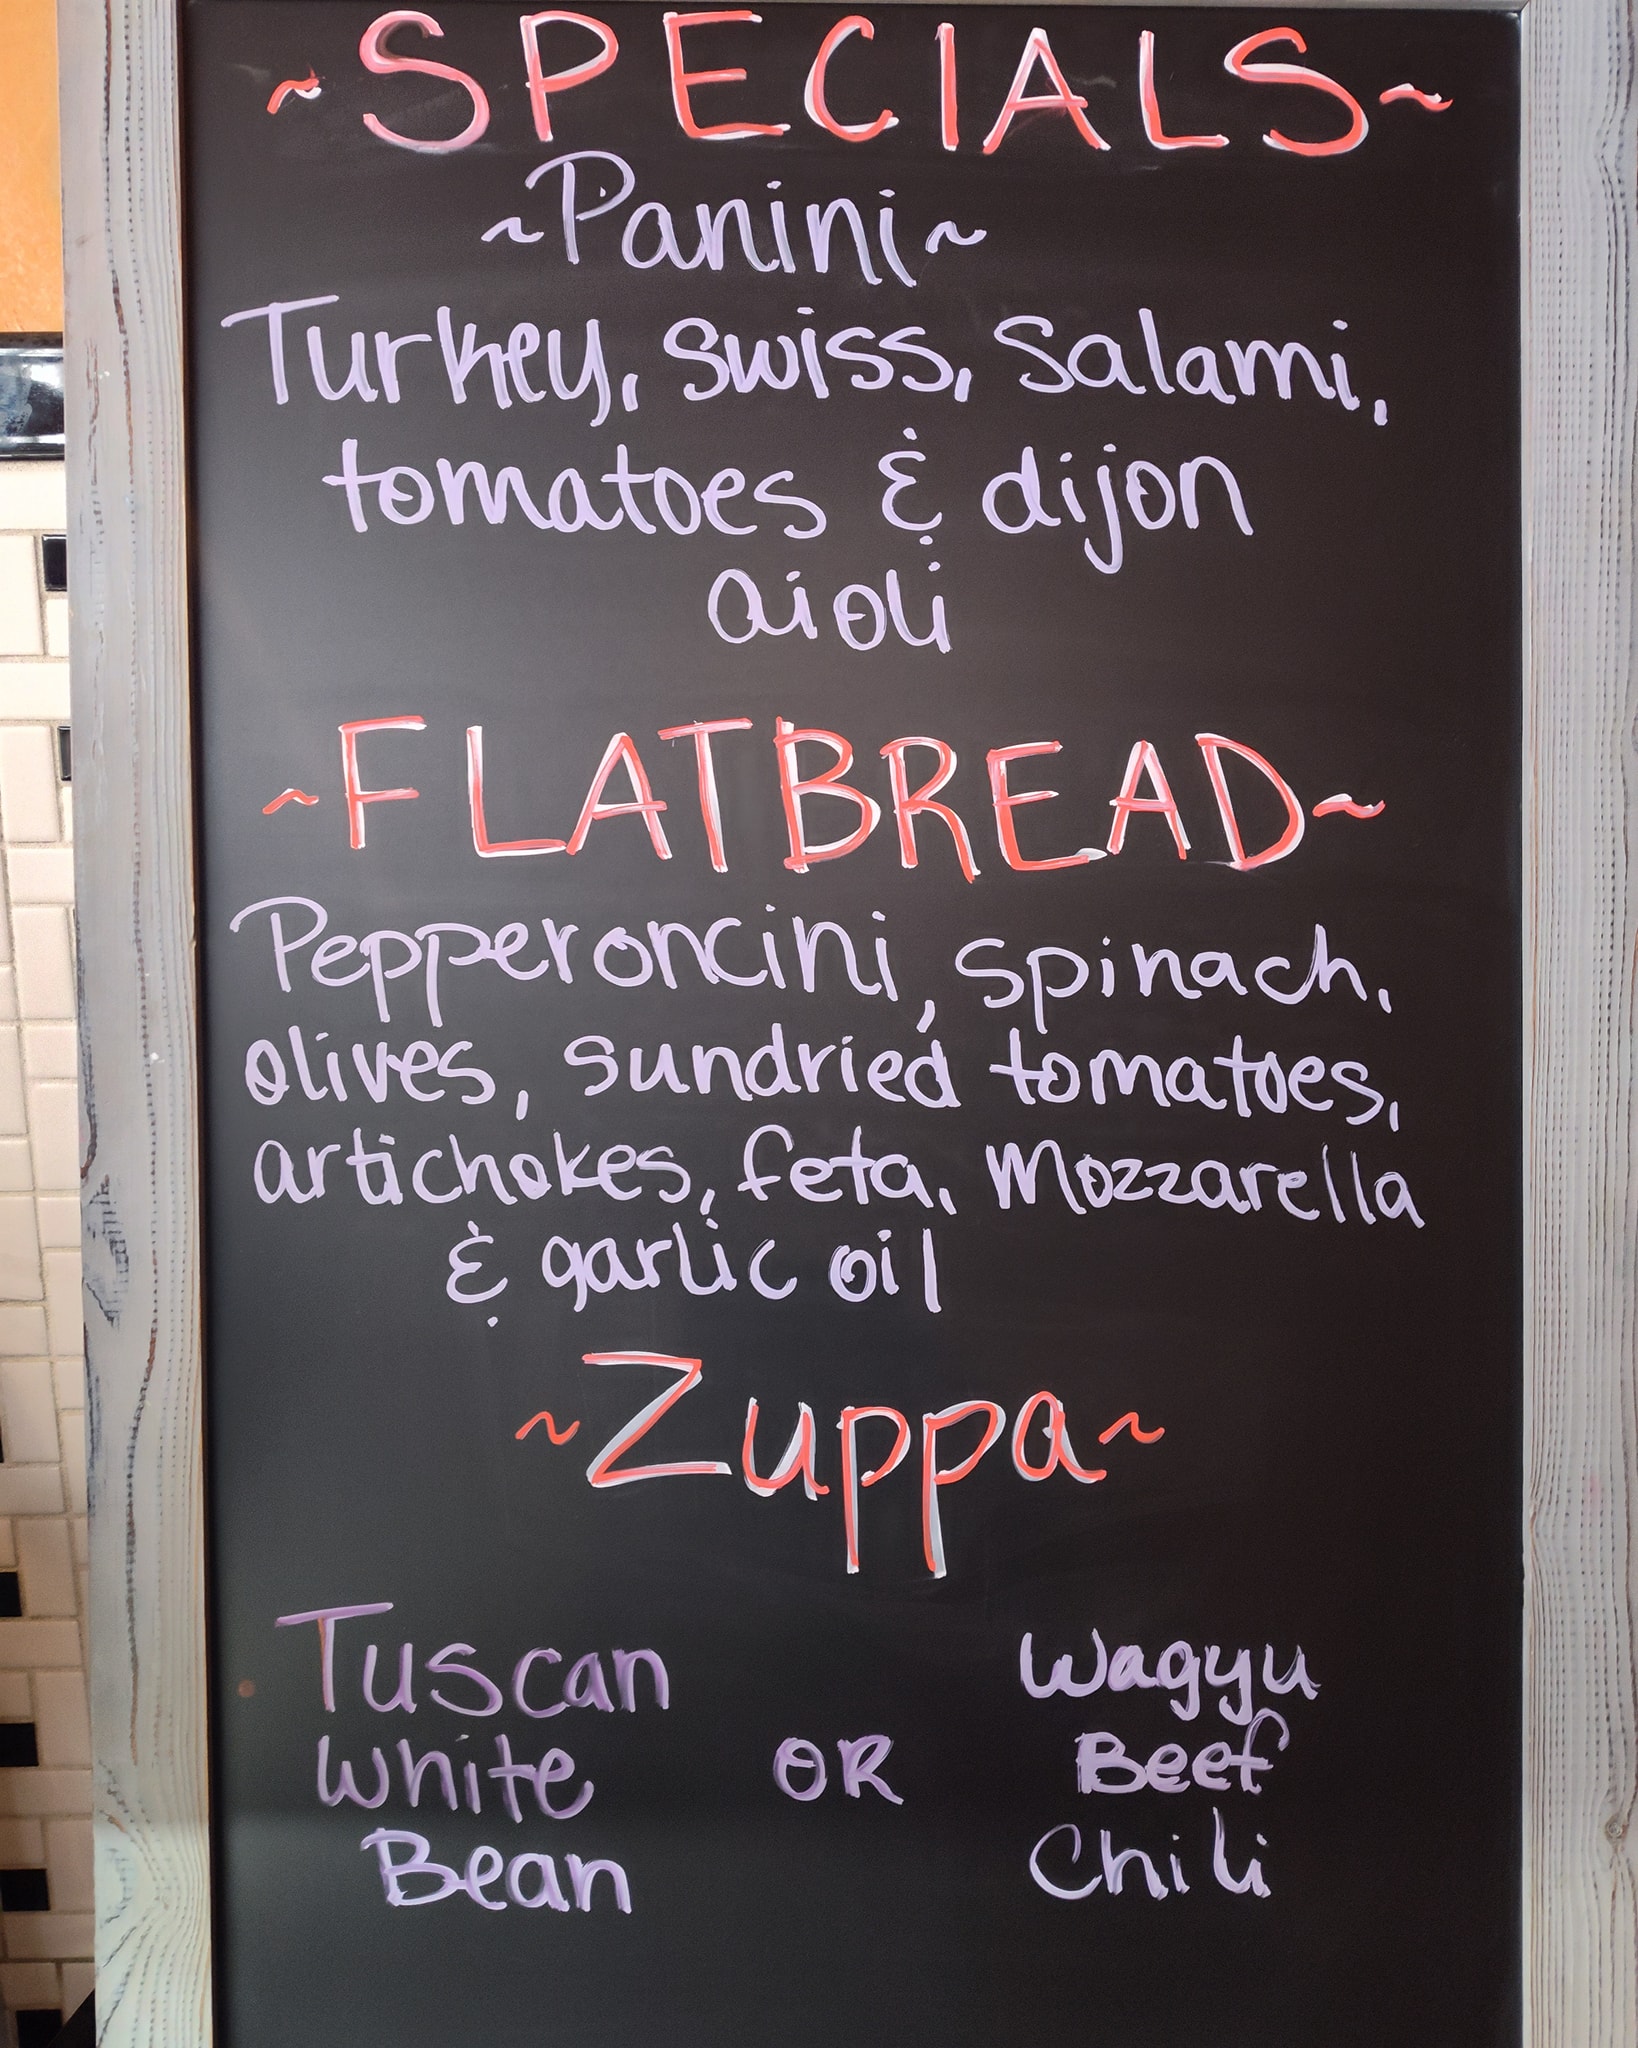 ~SPECIALS~
~Panini~
Turkey, swiss, salami,
tomatoes & dijon
aioli
~FLATBREAD~
Pepperoncini, spinach,
olives, sundried tomatoes,
artichokes, feta, Mozzarella
& garlic oil
~Zuppa~
Tuscan
White
Bean
OR
Wagyu
Beef
Chili